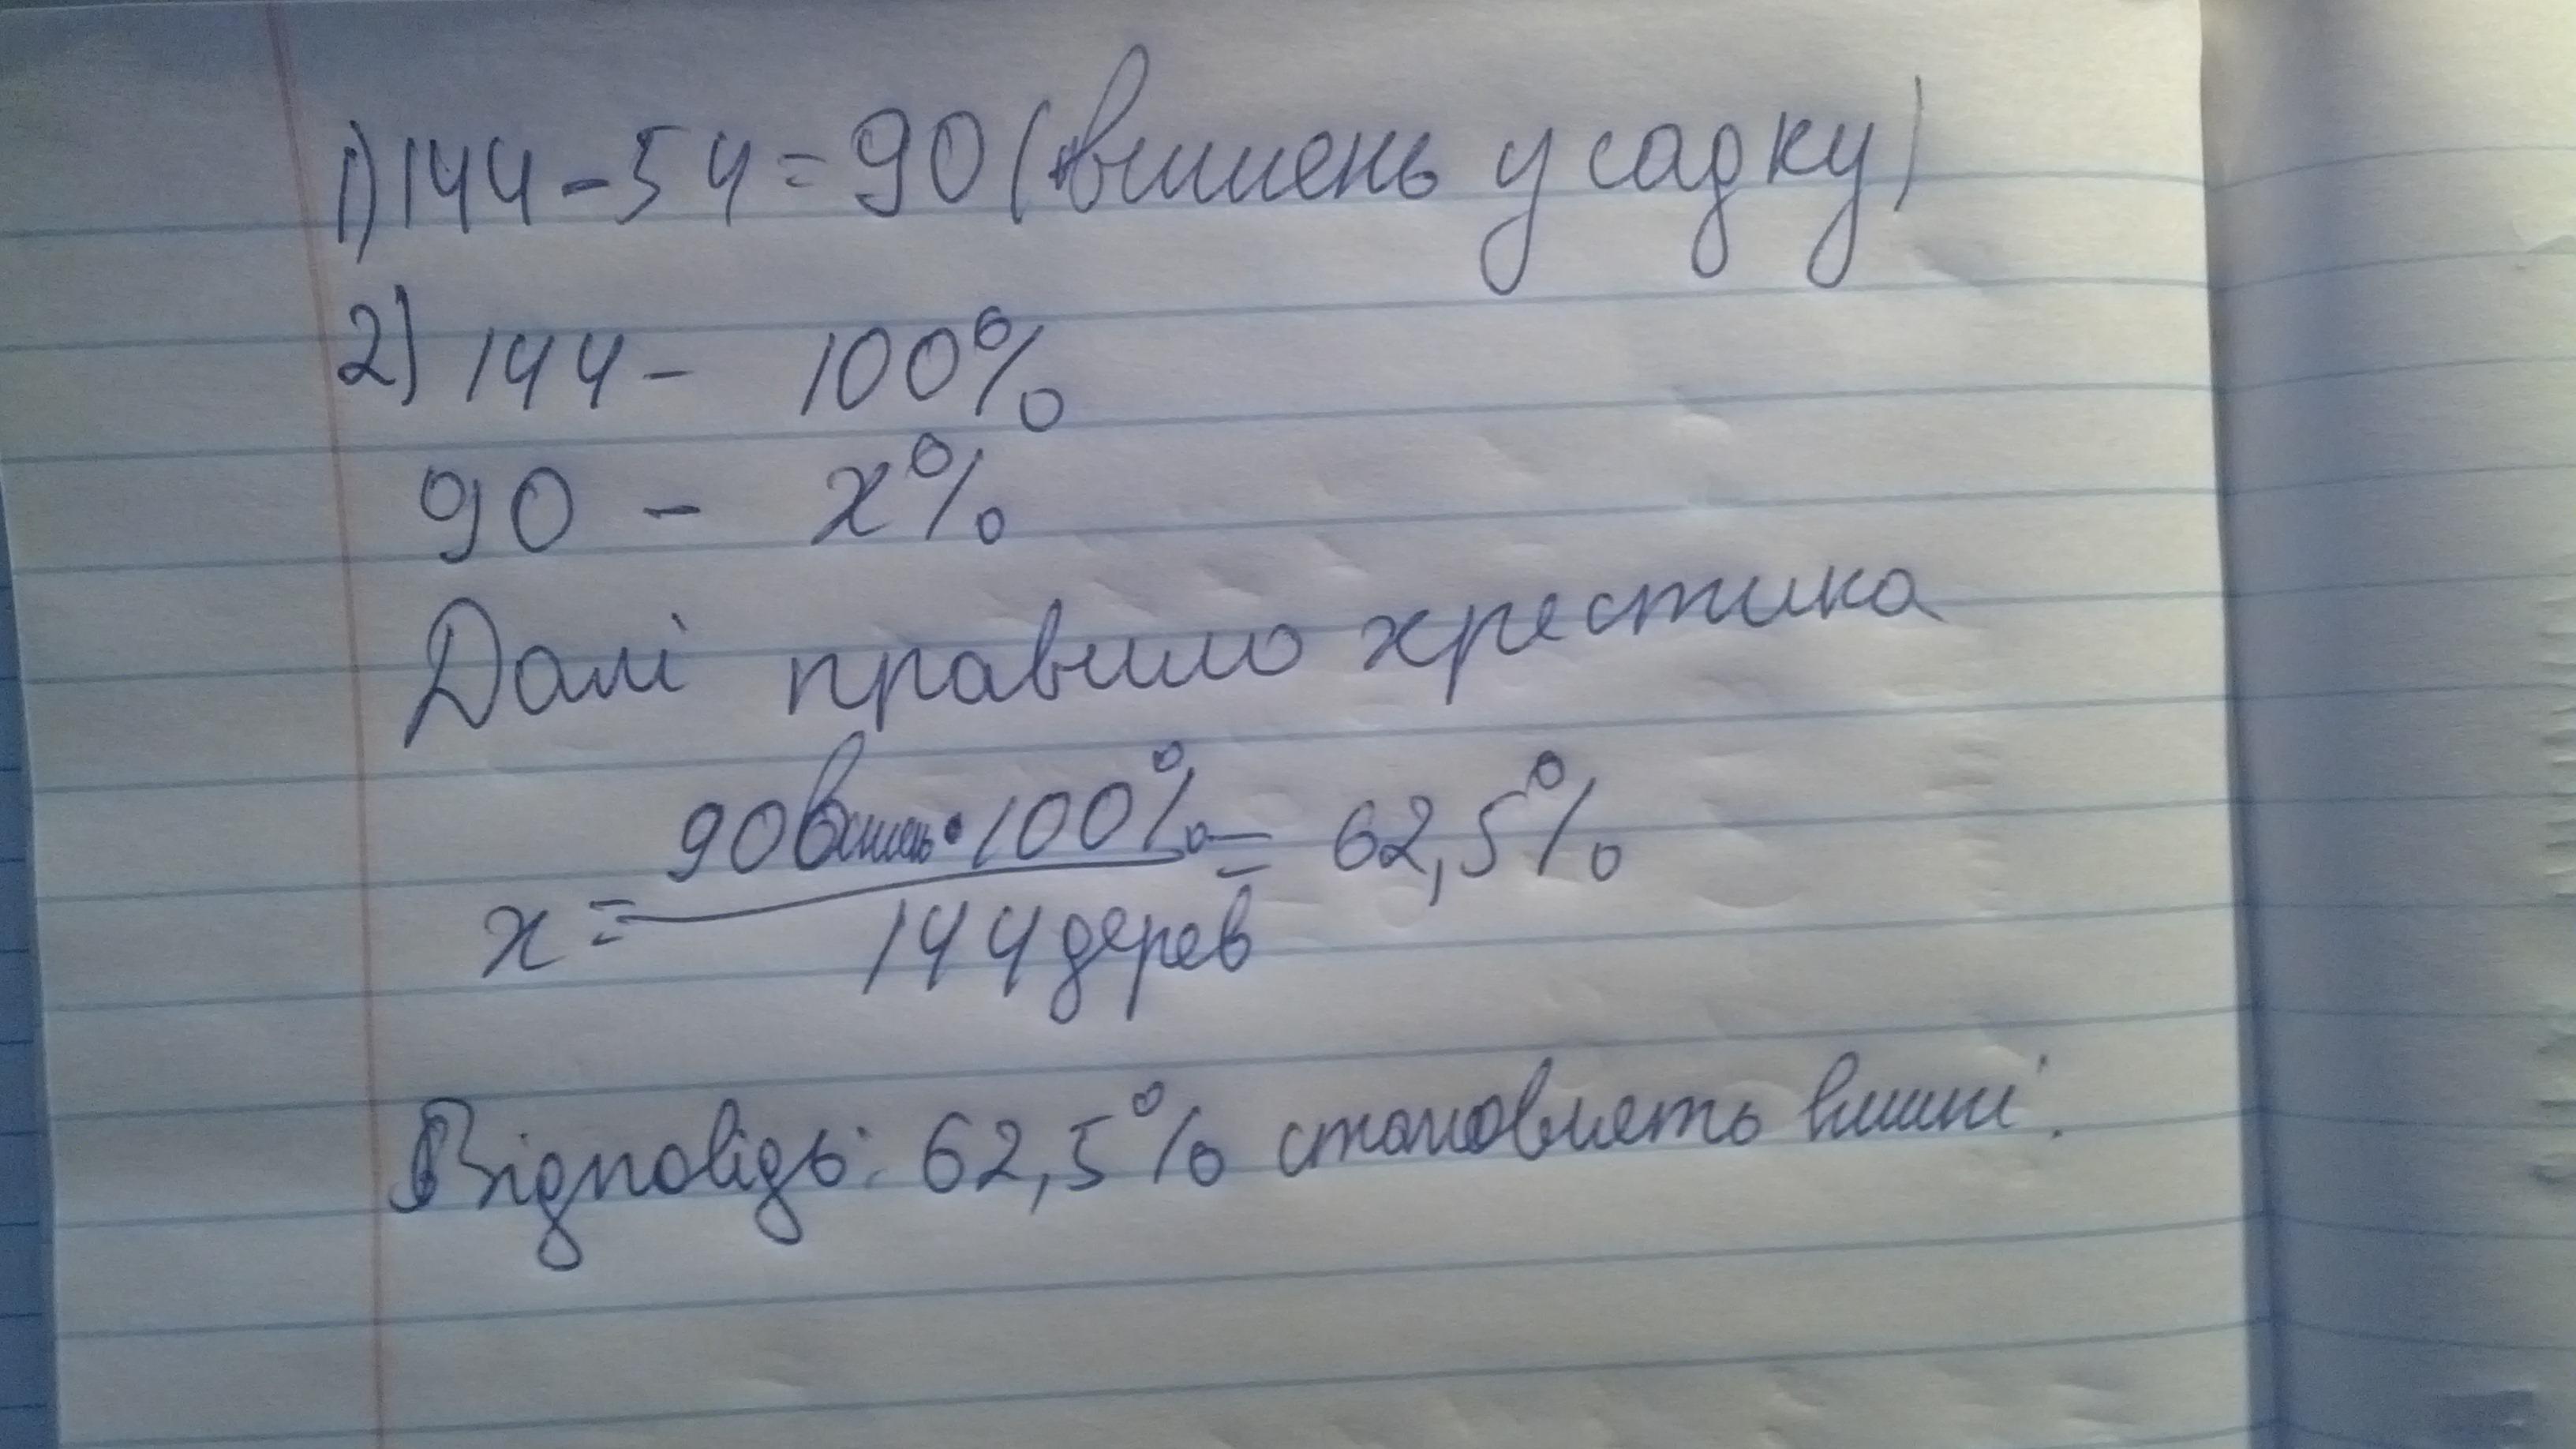 1) 144 - 54 = 90 (вишень у садку)
2) 144 - 100%
90 - x%
Далі правило хрестика
x = 90 вишень · 100% / 144 дерев = 62,5%
Відповідь: 62,5% становлять вишні.